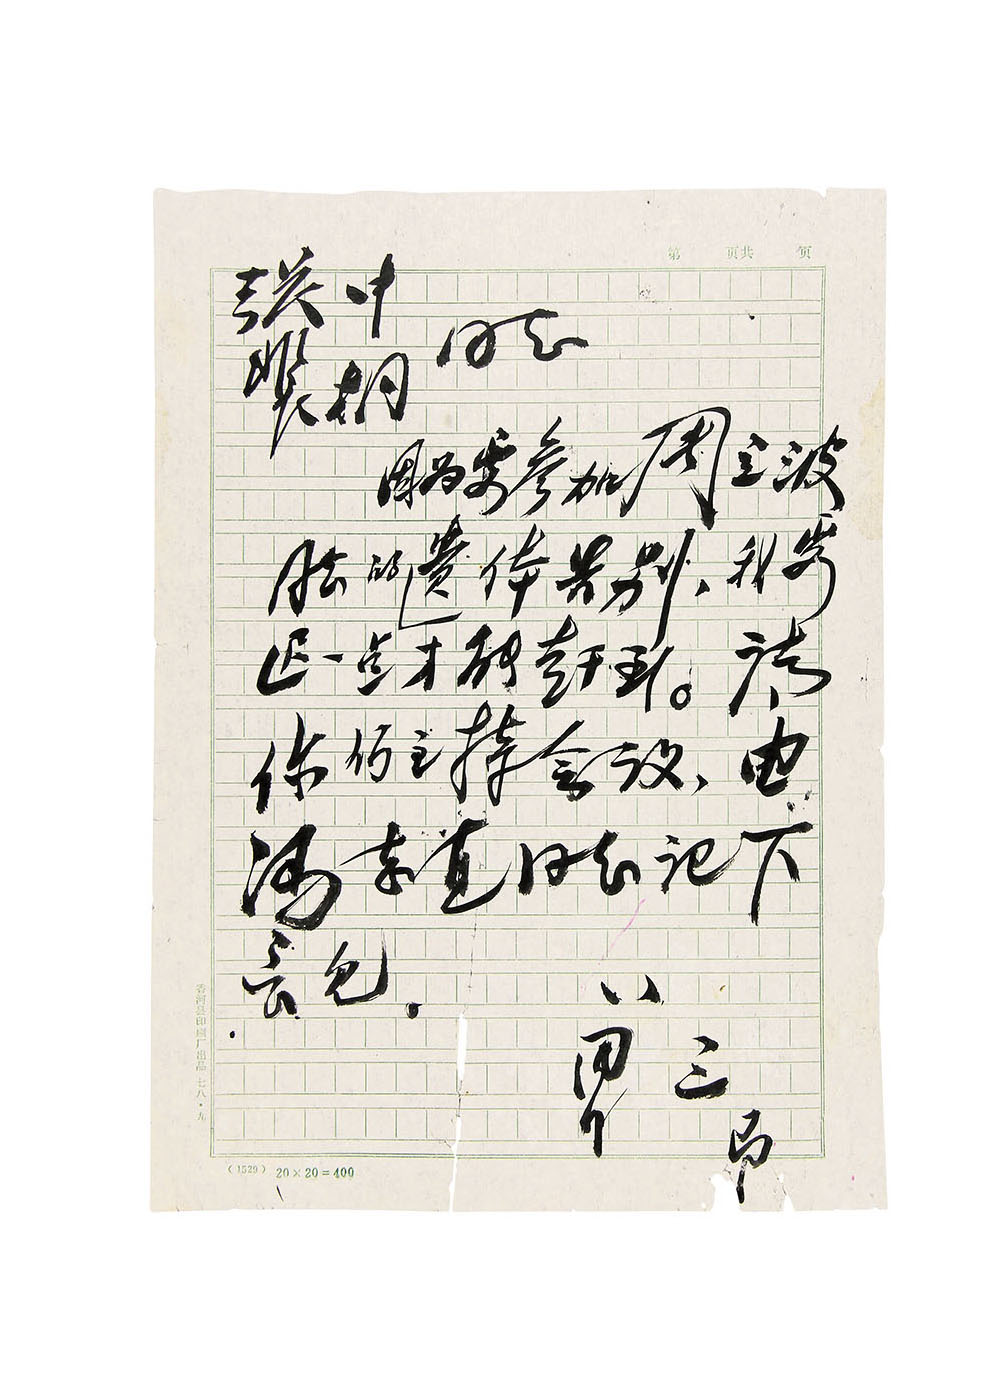 第 页共 页
张中
裴桐 同志
因为要参加周立波
同志的遗体告别，我要
迟一点才能赶到。请
你们主持会议，由
冯子直同志记下
意见。
曾三
即
香河县印刷厂出品 七八·九
（1529） 20×20=400